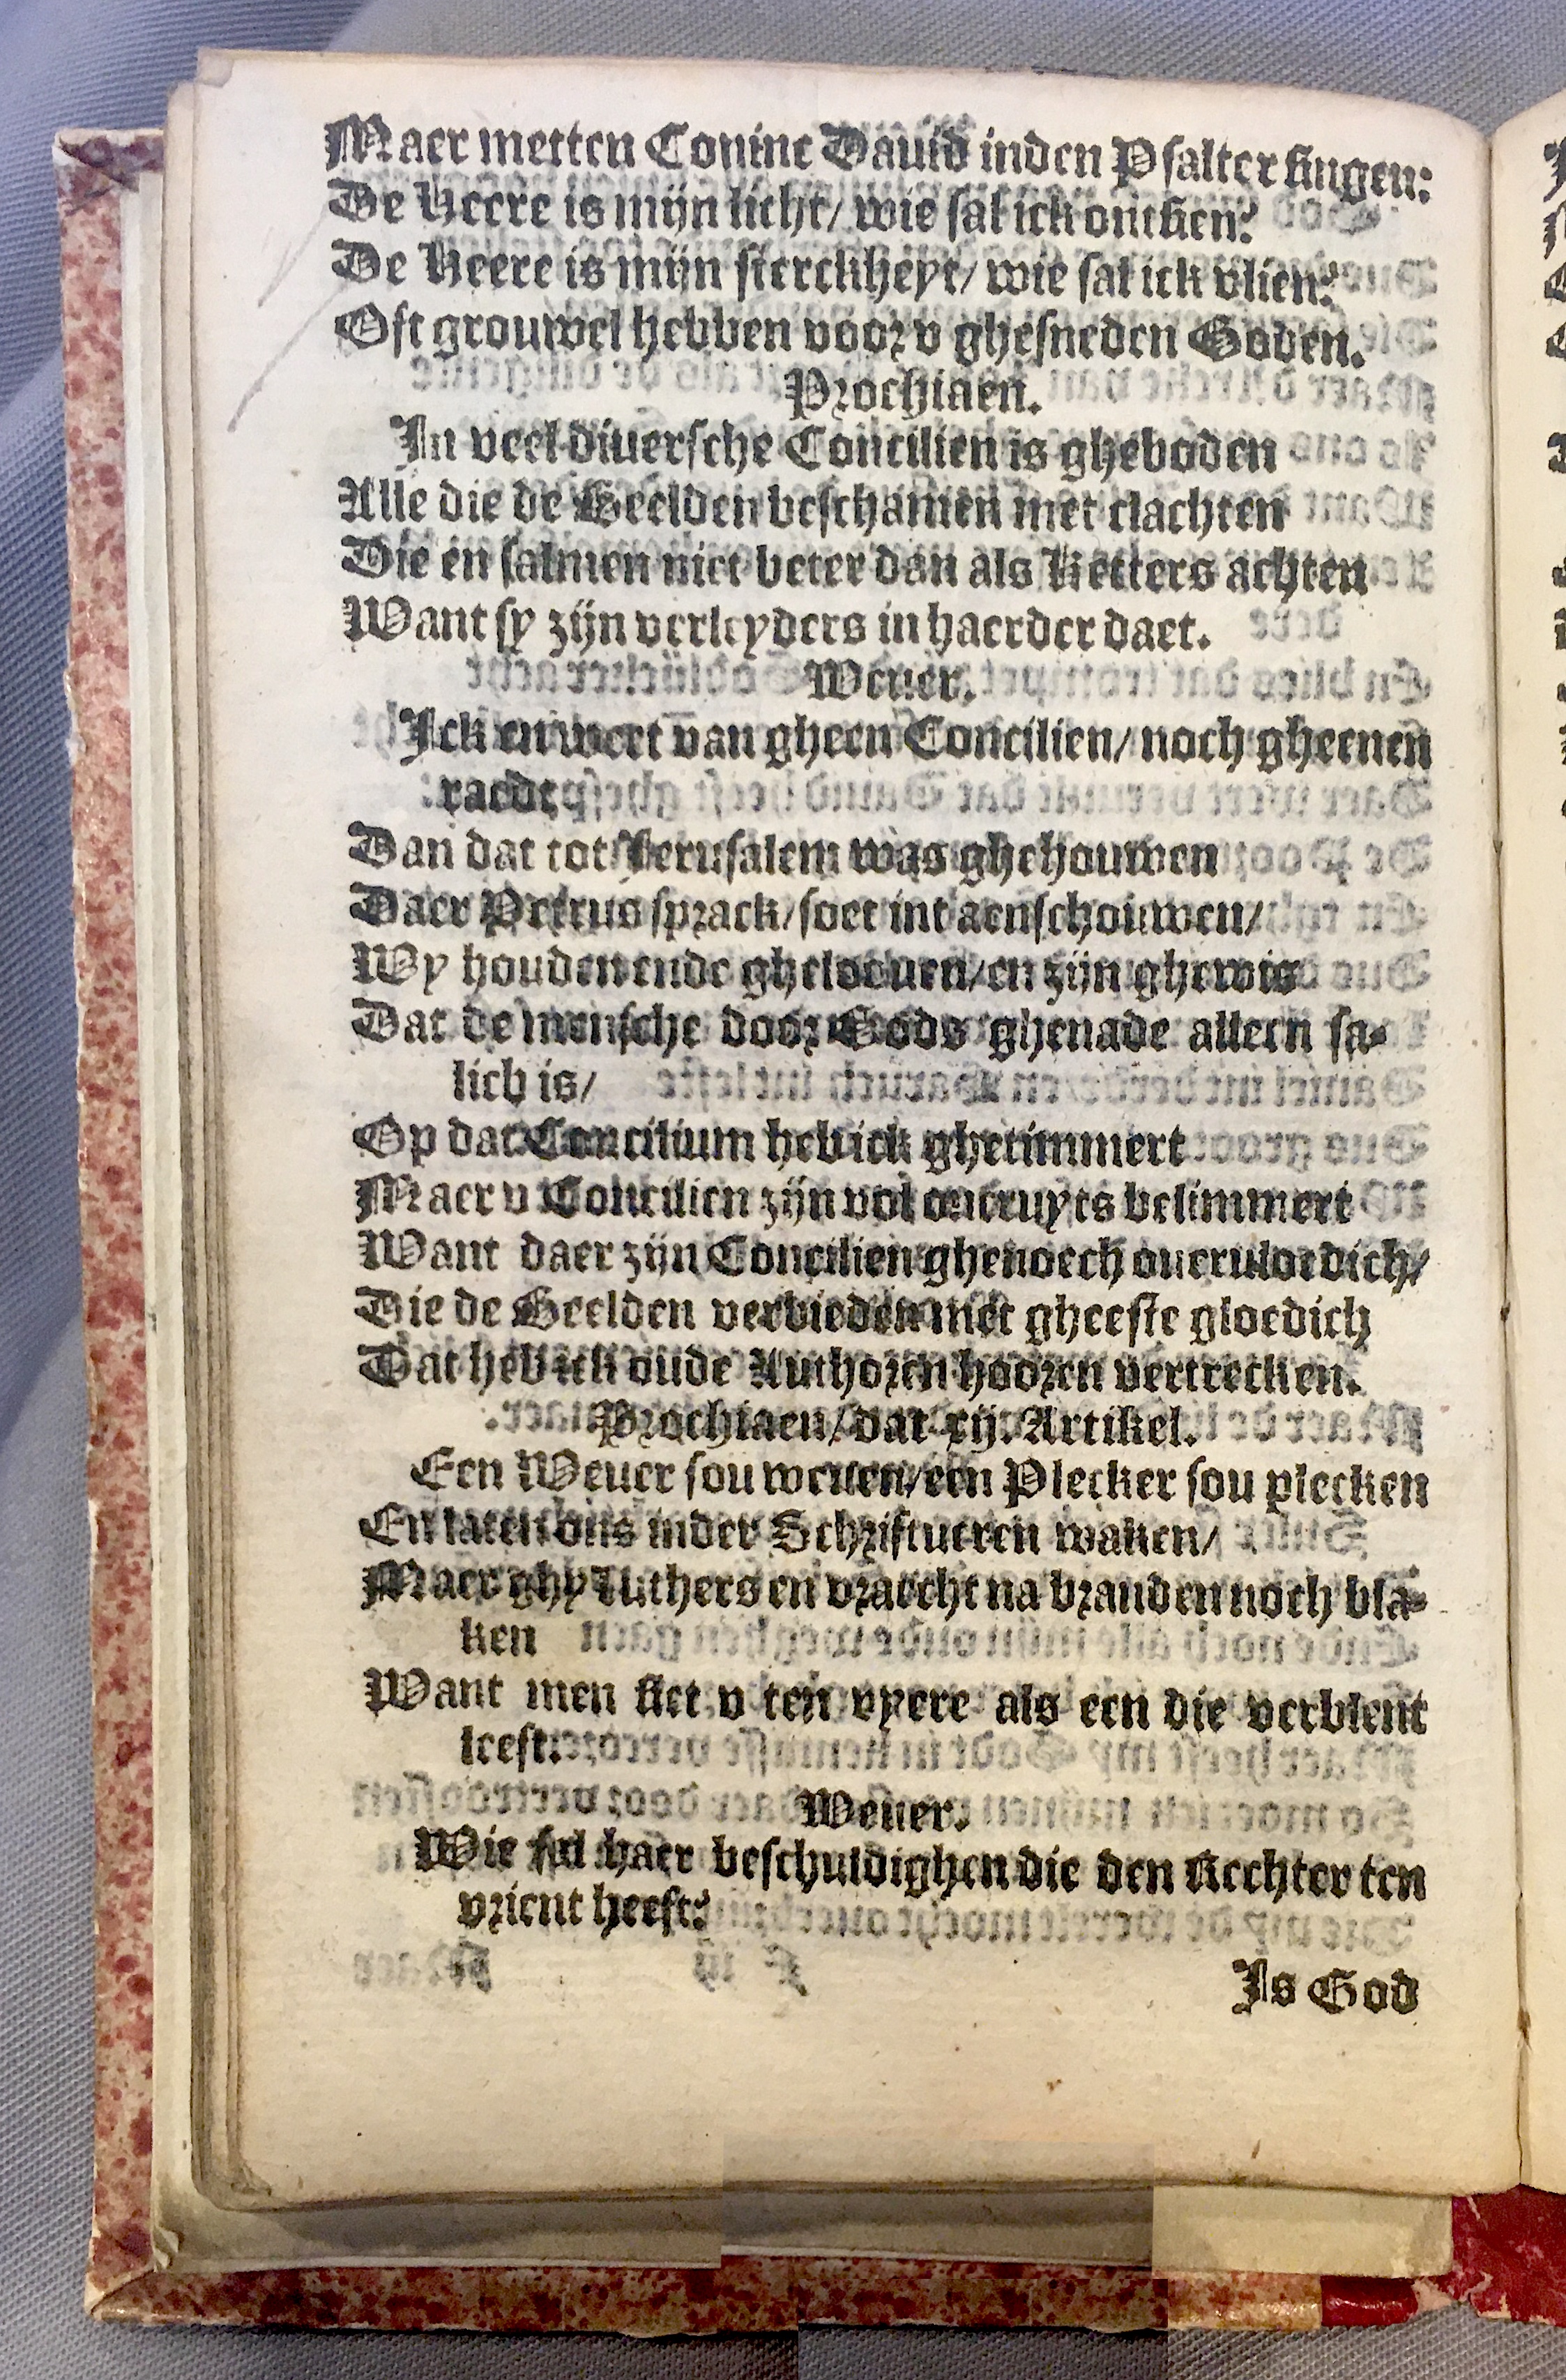 Maer metten Coninc Dauid inden Psalter singen:
De Heere is mijn licht/ wie sal ick ontsien?
De Heere is mijn sterckheyt/ wie sal ick vlien?
Oft grouwel hebben voor v ghesneden Goden.
Prochiaen.
In veel diuersche Concilien is gheboden
Alle die de Beelden beschamen met clachten
Die en salmen niet beter dan als Ketters achten
Want sy zijn verleyders in haerder daet.
Weuer.
Ick en weet van gheen Concilien/ noch gheenen
raedt
Dan dat tot Jerusalem was ghehouwen
Daer Petrus sprack/ soet int aenschouwen/
Wy houden ende gheloouen/ en zijn ghewis
Dat de mensche door Gods ghenade alleen sa-
lich is/
Op dat Concilium heb ick ghetimmert
Maer v Concilien zijn vol oncruyts belimmert
Want daer zijn Concilien ghenoech oueruloedich/
Die de Beelden verbieden met gheeste gloedich
Dat heb ick oude Authoren hooren vertrecken.
Prochiaen/ dat xij. Artikel.
Een Weuer sou weuen/ een Plecker sou plecken
En laten ons inder Schriftueren waken/
Maer ghy Luthers en vraecht na branden noch bla-
ken
Want men siet v ten vyere als een die verblent
leest.
Weuer.
Wie sal haer beschuldighen die den Rechter ten
vrient heeft?
Is God